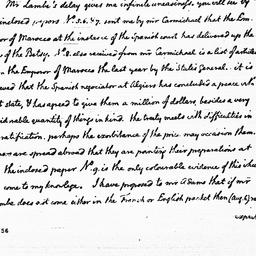 Mr Lamb's delay gives me infinite uneasiness. you will see by
inclosed papers No. 5. 6. & 7. sent me by mr Carmichael that the Em-
or of Marocco at the instance of the Spanish court has delivered up the
of the Betsy. No. 8. also received from mr Carmichael is a list of articles
the Emperor of Marocco the last year by the States General. it is
eved that the Spanish negotiator at Algiers has concluded a peace wh
t state, & has agreed to give them a million of dollars, besides a very
iderable quantity of things in kind. the treaty meets with difficulties in
ratification. perhaps the exorbitance of the price may occasion them.
are spread abroad that they are pointing their preparations at
the inclosed paper No. 9. is the only colourable evidence of this wh
come to my knowlege. I have proposed to mr Adams that if mr
mbe does not come either in the French or English packet then (aug.)
56